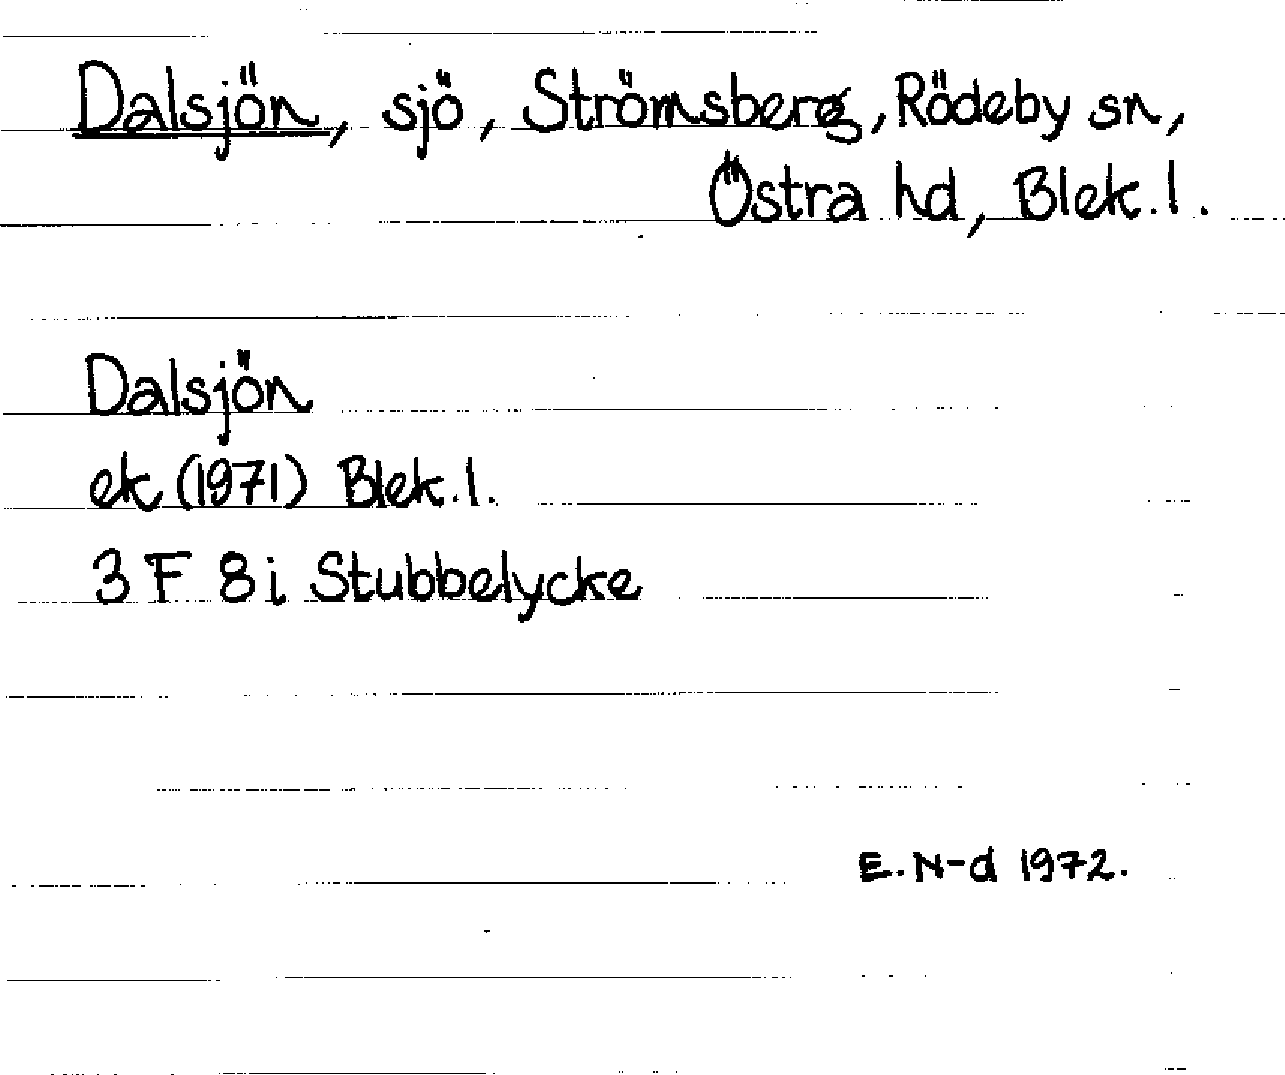 Dalsjön, sjö, Strömsberg, Rödeby sn,
Östra hd, Blek.l.
Dalsjön
ek (1971) Blek.l.
3 F 8i Stubbelycke
E.N-d 1972.